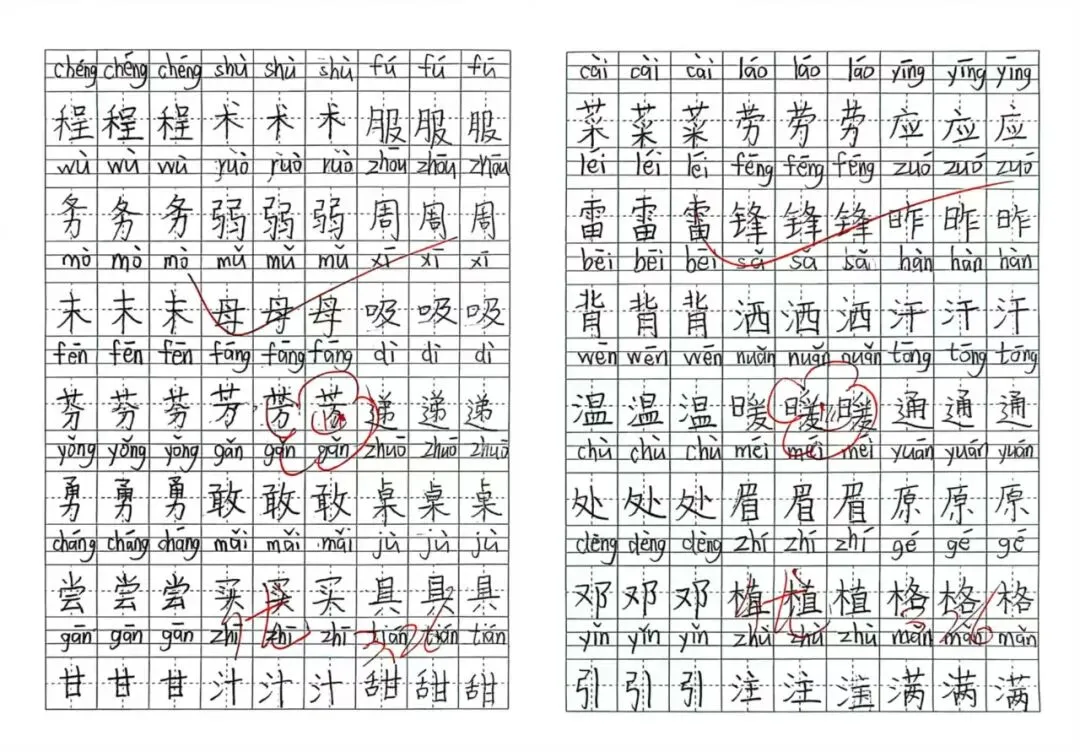 chéng chéng chéng shù shù shù fú fú fú
程 程 程 术 术 术 服 服 服
wù wù wù ruò ruò ruò zhōu zhōu zhōu
务 务 务 弱 弱 弱 周 周 周
mò mò mò mǔ mǔ mǔ xī xī xī
末 末 末 母 母 母 吸 吸 吸
fēn fēn fēn fāng fāng fāng dì dì dì
芬 芬 芬 芳 芳 芳 递 递 递
yǒng yǒng yǒng gǎn gǎn gǎn zhuō zhuō zhuō
勇 勇 勇 敢 敢 敢 桌 桌 桌
cháng cháng cháng mǎi mǎi mǎi jù jù jù
尝 尝 尝 买 买 买 具 具 具
gān gān gān zhī zhī zhī tián tián tián
甘 甘 甘 汁 汁 汁 甜 甜 甜
优 3.26
cài cài cài láo láo láo yīng yīng yīng
菜 菜 菜 劳 劳 劳 应 应 应
léi léi léi fēng fēng fēng zuó zuó zuó
雷 雷 雷 锋 锋 锋 昨 昨 昨
bēi bēi bēi sǎ sǎ sǎ hàn hàn hàn
背 背 背 洒 洒 洒 汗 汗 汗
wēn wēn wēn nuǎn nuǎn nuǎn tōng tōng tōng
温 温 温 暖 暖 暖 通 通 通
chù chù chù méi méi méi yuán yuán yuán
处 处 处 眉 眉 眉 原 原 原
dèng dèng dèng zhí zhí zhí gé gé gé
邓 邓 邓 植 植 植 格 格 格
yǐn yǐn yǐn zhù zhù zhù mǎn mǎn mǎn
引 引 引 注 注 注 满 满 满
优 3.26